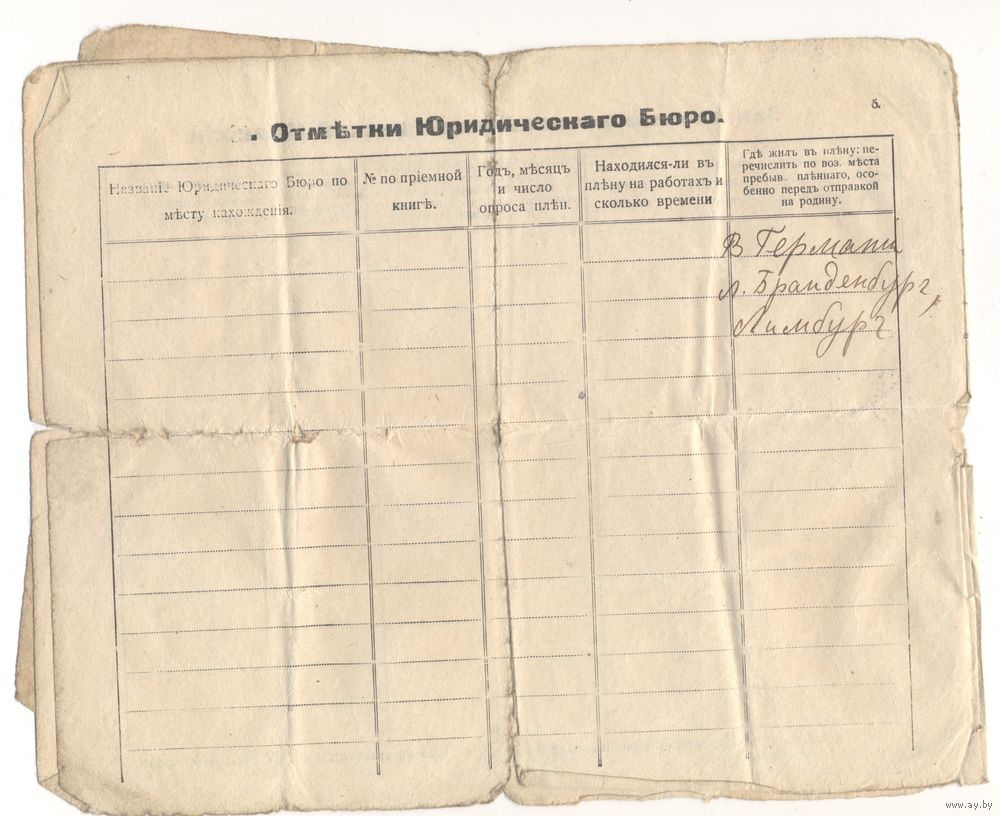 5.
Отмѣтки Юридическаго Бюро.
Названіе Юридическаго Бюро по
мѣсту нахожденія.
№ по пріемной
книгѣ.
Годъ, мѣсяцъ
и число
опроса плѣн.
Находился-ли въ
плѣну на работахъ и
сколько времени
Гдѣ жилъ въ плѣну: пе-
речислить по воз. мѣста
пребыв. плѣннаго, осо-
бенно передъ отправкой
на родину.
В Германи
л. Бранденбург,
Лимбург
www.ay.by